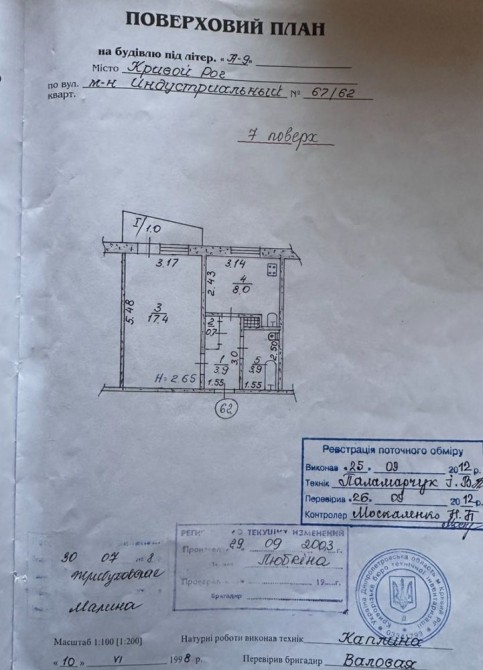 ПОВЕРХОВИЙ ПЛАН
на будівлю під літер. «П-9»
Місто Кривой Рог
по вул. м-н Индустриальный № 67/62
кварт.
7 поверх
I/1.0
3.17 3.14
2.43
4
8,0
5.48
3
17.4
2
0,7
1
3.9
3.0
5
3.9
2.50
H=2.65
1.55 1.55
62
Реєстрація поточного обміру
Виконав «25» 09 2012 р.
Технік Паламарчук Г.
Перевірив «26» 09 2012 р.
Контролер Москаленко Н.П
ТЕКУЩИХ ИЗМЕНЕНИЙ
29. 09 2003 г.
Любкина
19 г.
Бригадир
30 07
Марина
Масштаб 1:100 [1:200] Натурні роботи виконав технік Каплина
«10» VI 1998 р. Перевірив бригадир Валовая